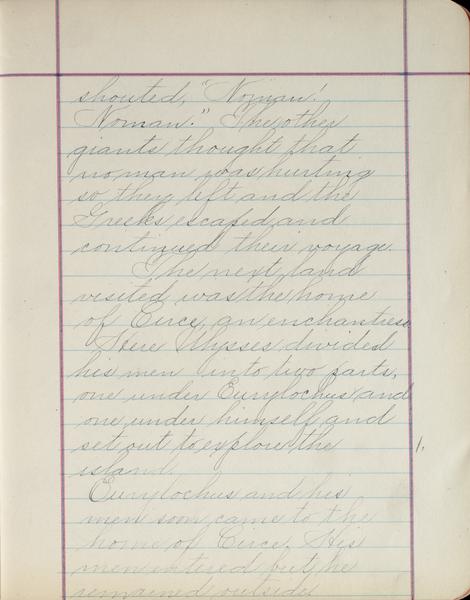 shouted, "Noman!
Noman." The other
giants thought that
no man was hurting
so they left and the
Greeks escaped and
continued their voyage.
The next land
visited was the home
of Circe, an enchantress
Here Ulysses divided
his men into two parts,
one under Eurylochus and
one under himself and
set out to explore the
island.
1.
Eurylochus and his
men soon came to the
home of Circe. His
men entered but he
remained outside